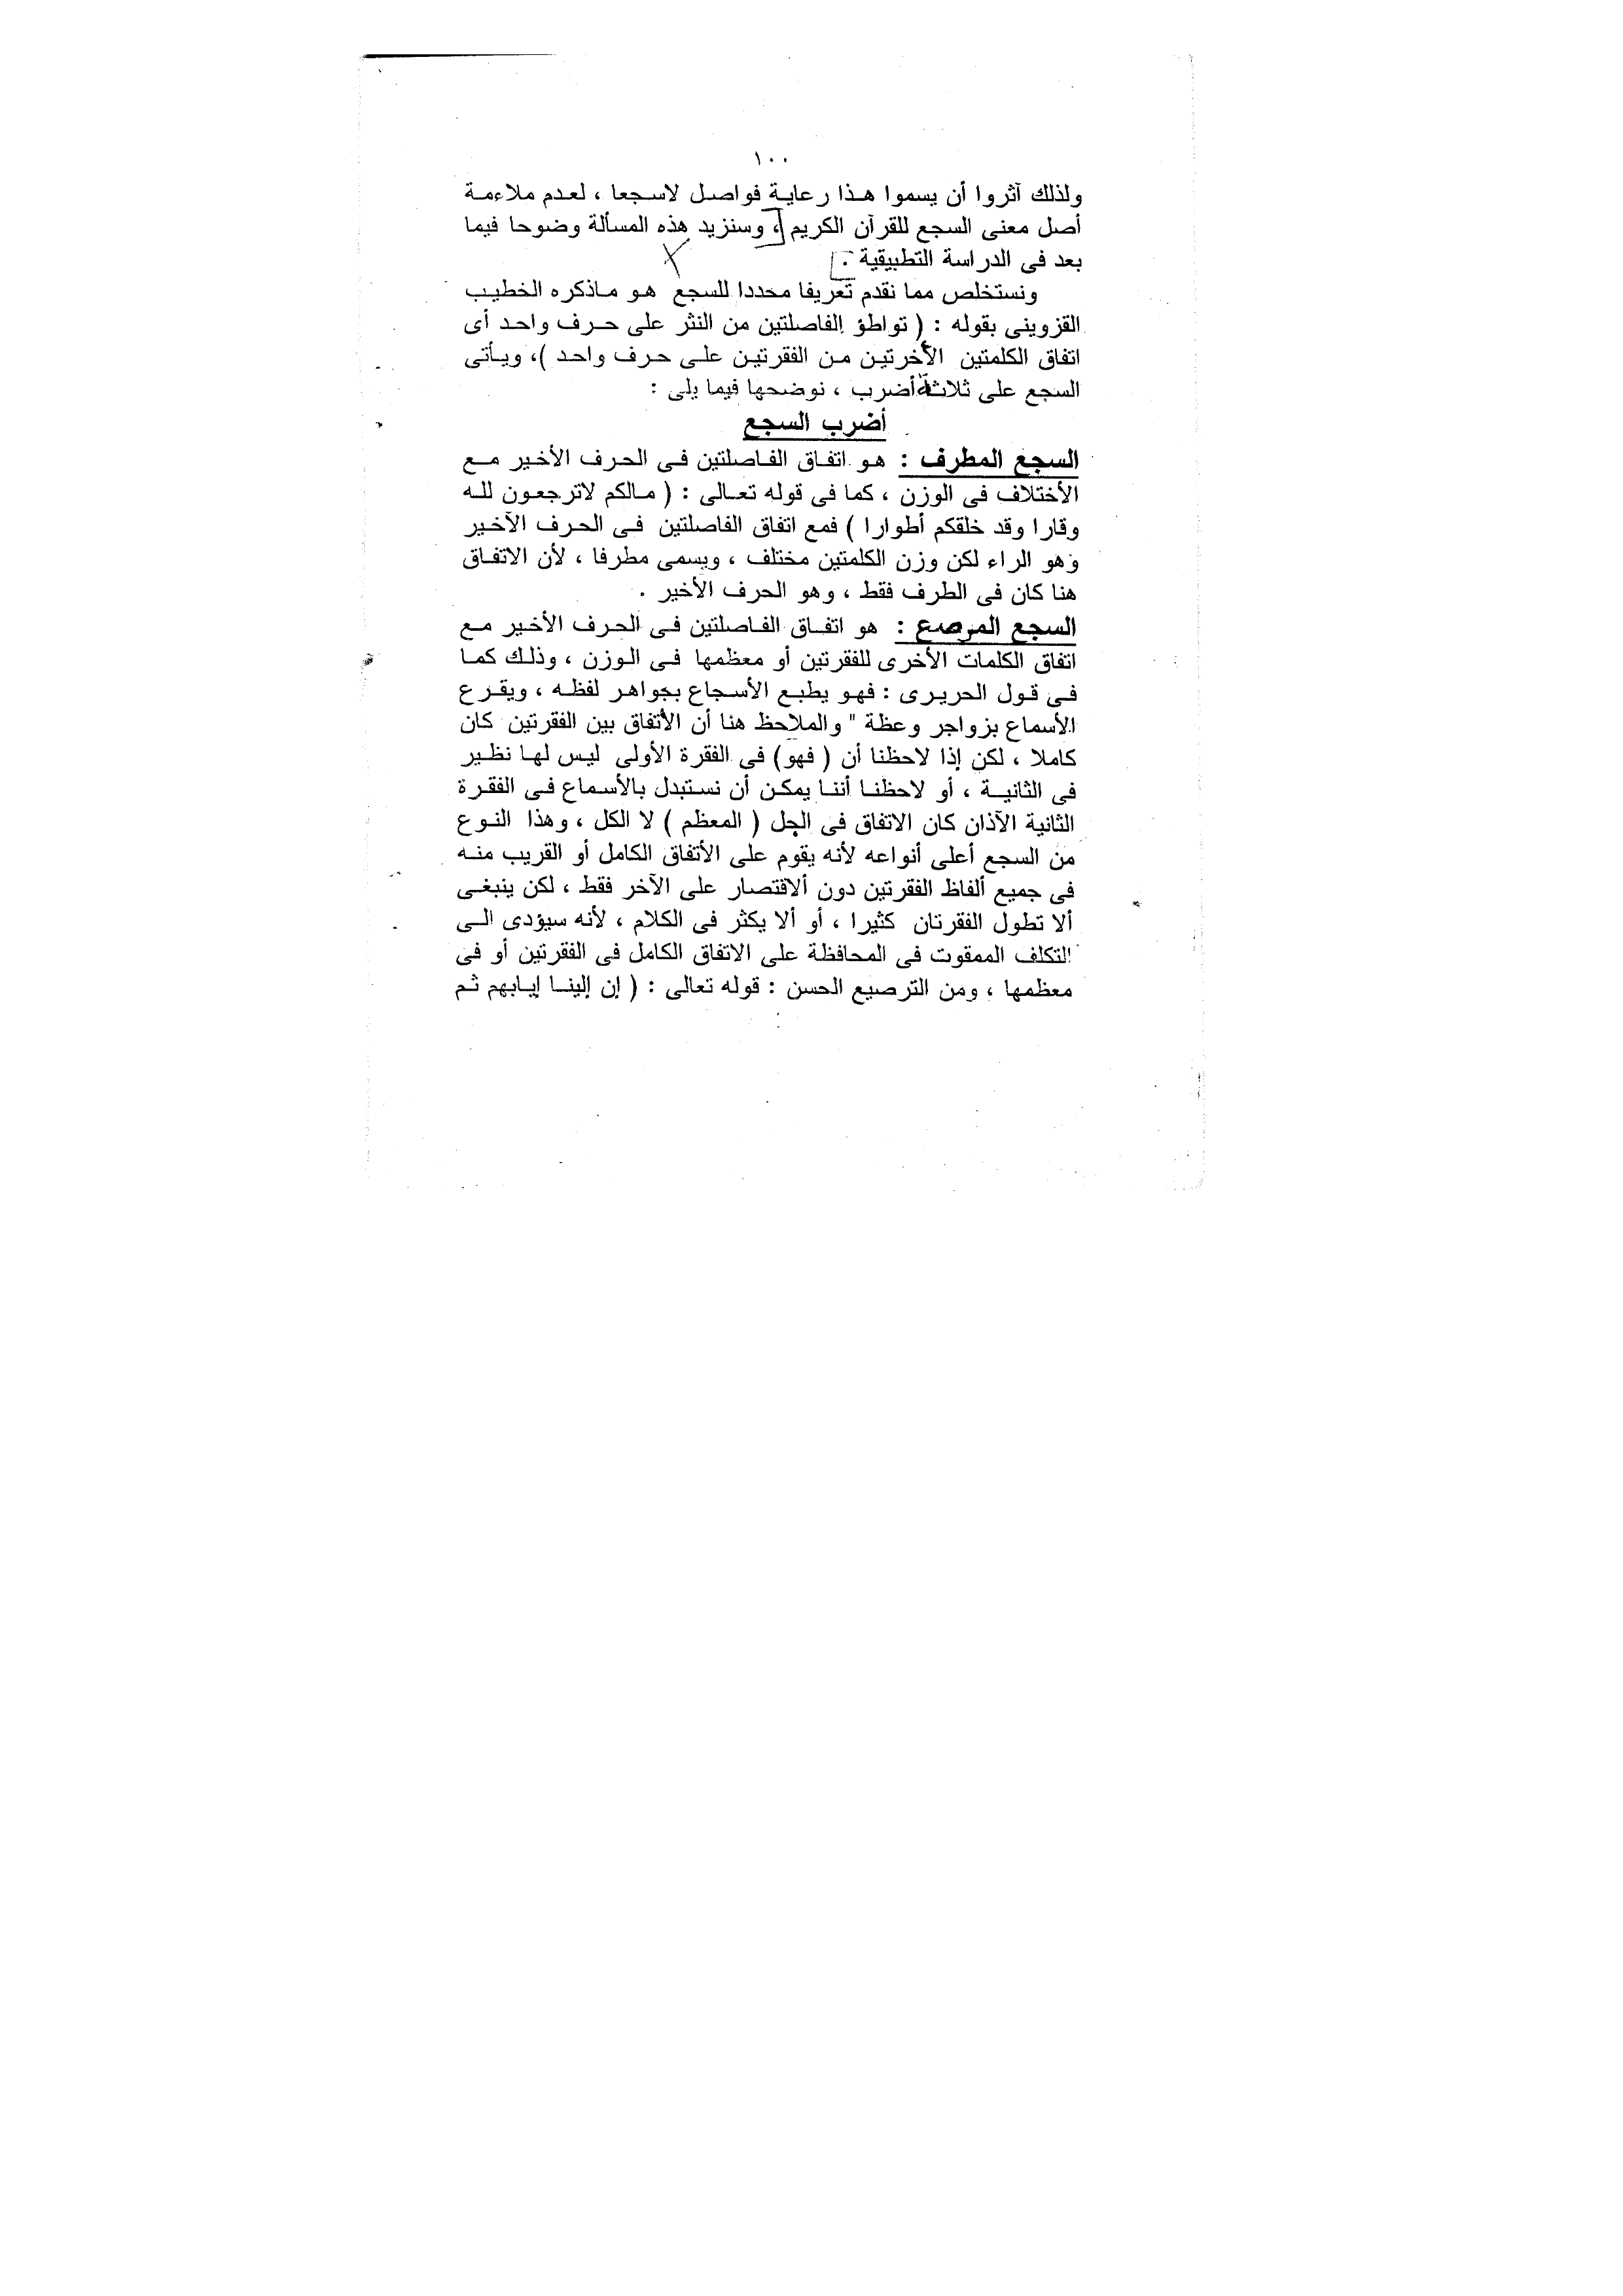 ١٠٠
ولذلك آثروا أن يسموا هذا رعاية فواصل لاسجعا ، لعدم ملاءمة
أصل معنى السجع للقرآن الكريم ، وسنزيد هذه المسألة وضوحا فيما
بعد فى الدراسة التطبيقية .
ونستخلص مما نقدم تعريفا محددا للسجع هو ماذكره الخطيب
القزوينى بقوله : ( تواطؤ الفاصلتين من النثر على حرف واحد أى
اتفاق الكلمتين الأخرتين من الفقرتين على حرف واحد )، ويأتى
السجع على ثلاثة أضرب ، نوضحها فيما يلى :
أضرب السجع
السجع المطرف : هو اتفاق الفاصلتين فى الحرف الأخير مع
الأختلاف فى الوزن ، كما فى قوله تعالى : ( مالكم لاترجعون لله
وقارا وقد خلقكم أطوارا ) فمع اتفاق الفاصلتين فى الحرف الآخير
وهو الراء لكن وزن الكلمتين مختلف ، ويسمى مطرفا ، لأن الاتفاق
هنا كان فى الطرف فقط ، وهو الحرف الأخير .
السجع المرصع : هو اتفاق الفاصلتين فى الحرف الأخير مع
اتفاق الكلمات الأخرى للفقرتين أو معظمها فى الوزن ، وذلك كما
فى قول الحريرى : فهو يطبع الأسجاع بجواهر لفظه ، ويقرع
الأسماع بزواجر وعظة " والملاحظ هنا أن الأتفاق بين الفقرتين كان
كاملا ، لكن إذا لاحظنا أن ( فهو) فى الفقرة الأولى ليس لها نظير
فى الثانية ، أو لاحظنا أننا يمكن أن نستبدل بالأسماع فى الفقرة
الثانية الآذان كان الاتفاق فى الجل ( المعظم ) لا الكل ، وهذا النوع
من السجع أعلى أنواعه لأنه يقوم على الأتفاق الكامل أو القريب منه
فى جميع ألفاظ الفقرتين دون ألاقتصار على الآخر فقط ، لكن ينبغى
ألا تطول الفقرتان كثيرا ، أو ألا يكثر فى الكلام ، لأنه سيؤدى الى
التكلف الممقوت فى المحافظة على الاتفاق الكامل فى الفقرتين أو فى
معظمها ، ومن الترصيع الحسن : قوله تعالى : ( إن إلينا إيابهم ثم